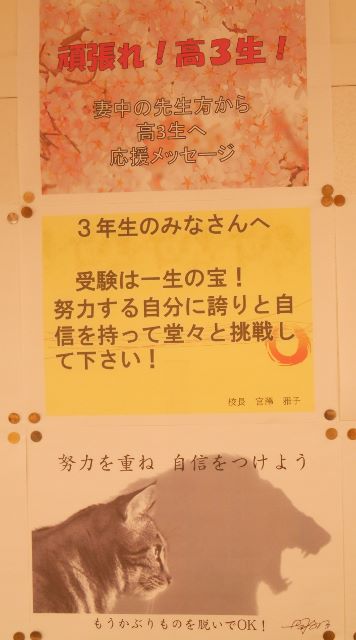 頑張れ！高3生！
妻中の先生方から
高3生へ
応援メッセージ
３年生のみなさんへ
受験は一生の宝！
努力する自分に誇りと自
信を持って堂々と挑戦し
て下さい！
校長　宮陽　雅子
努力を重ね 自信をつけよう
もうかぶりものを脱いでOK！